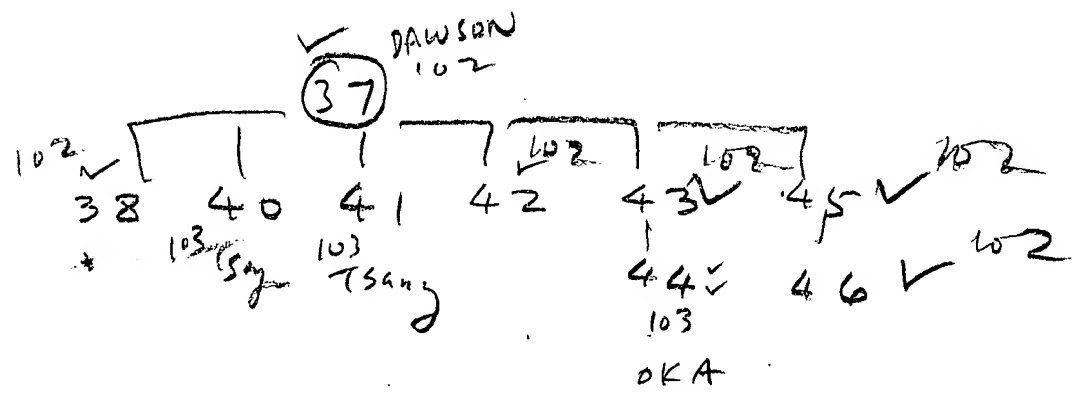 ✓ DAWSON
102
37
102 ✓ 102 ✓ 102 102
38 40 41 42 43 ✓ 45 ✓
* 103 103
Tsang
44 ✓✓ 46 ✓ 102
103
OKA